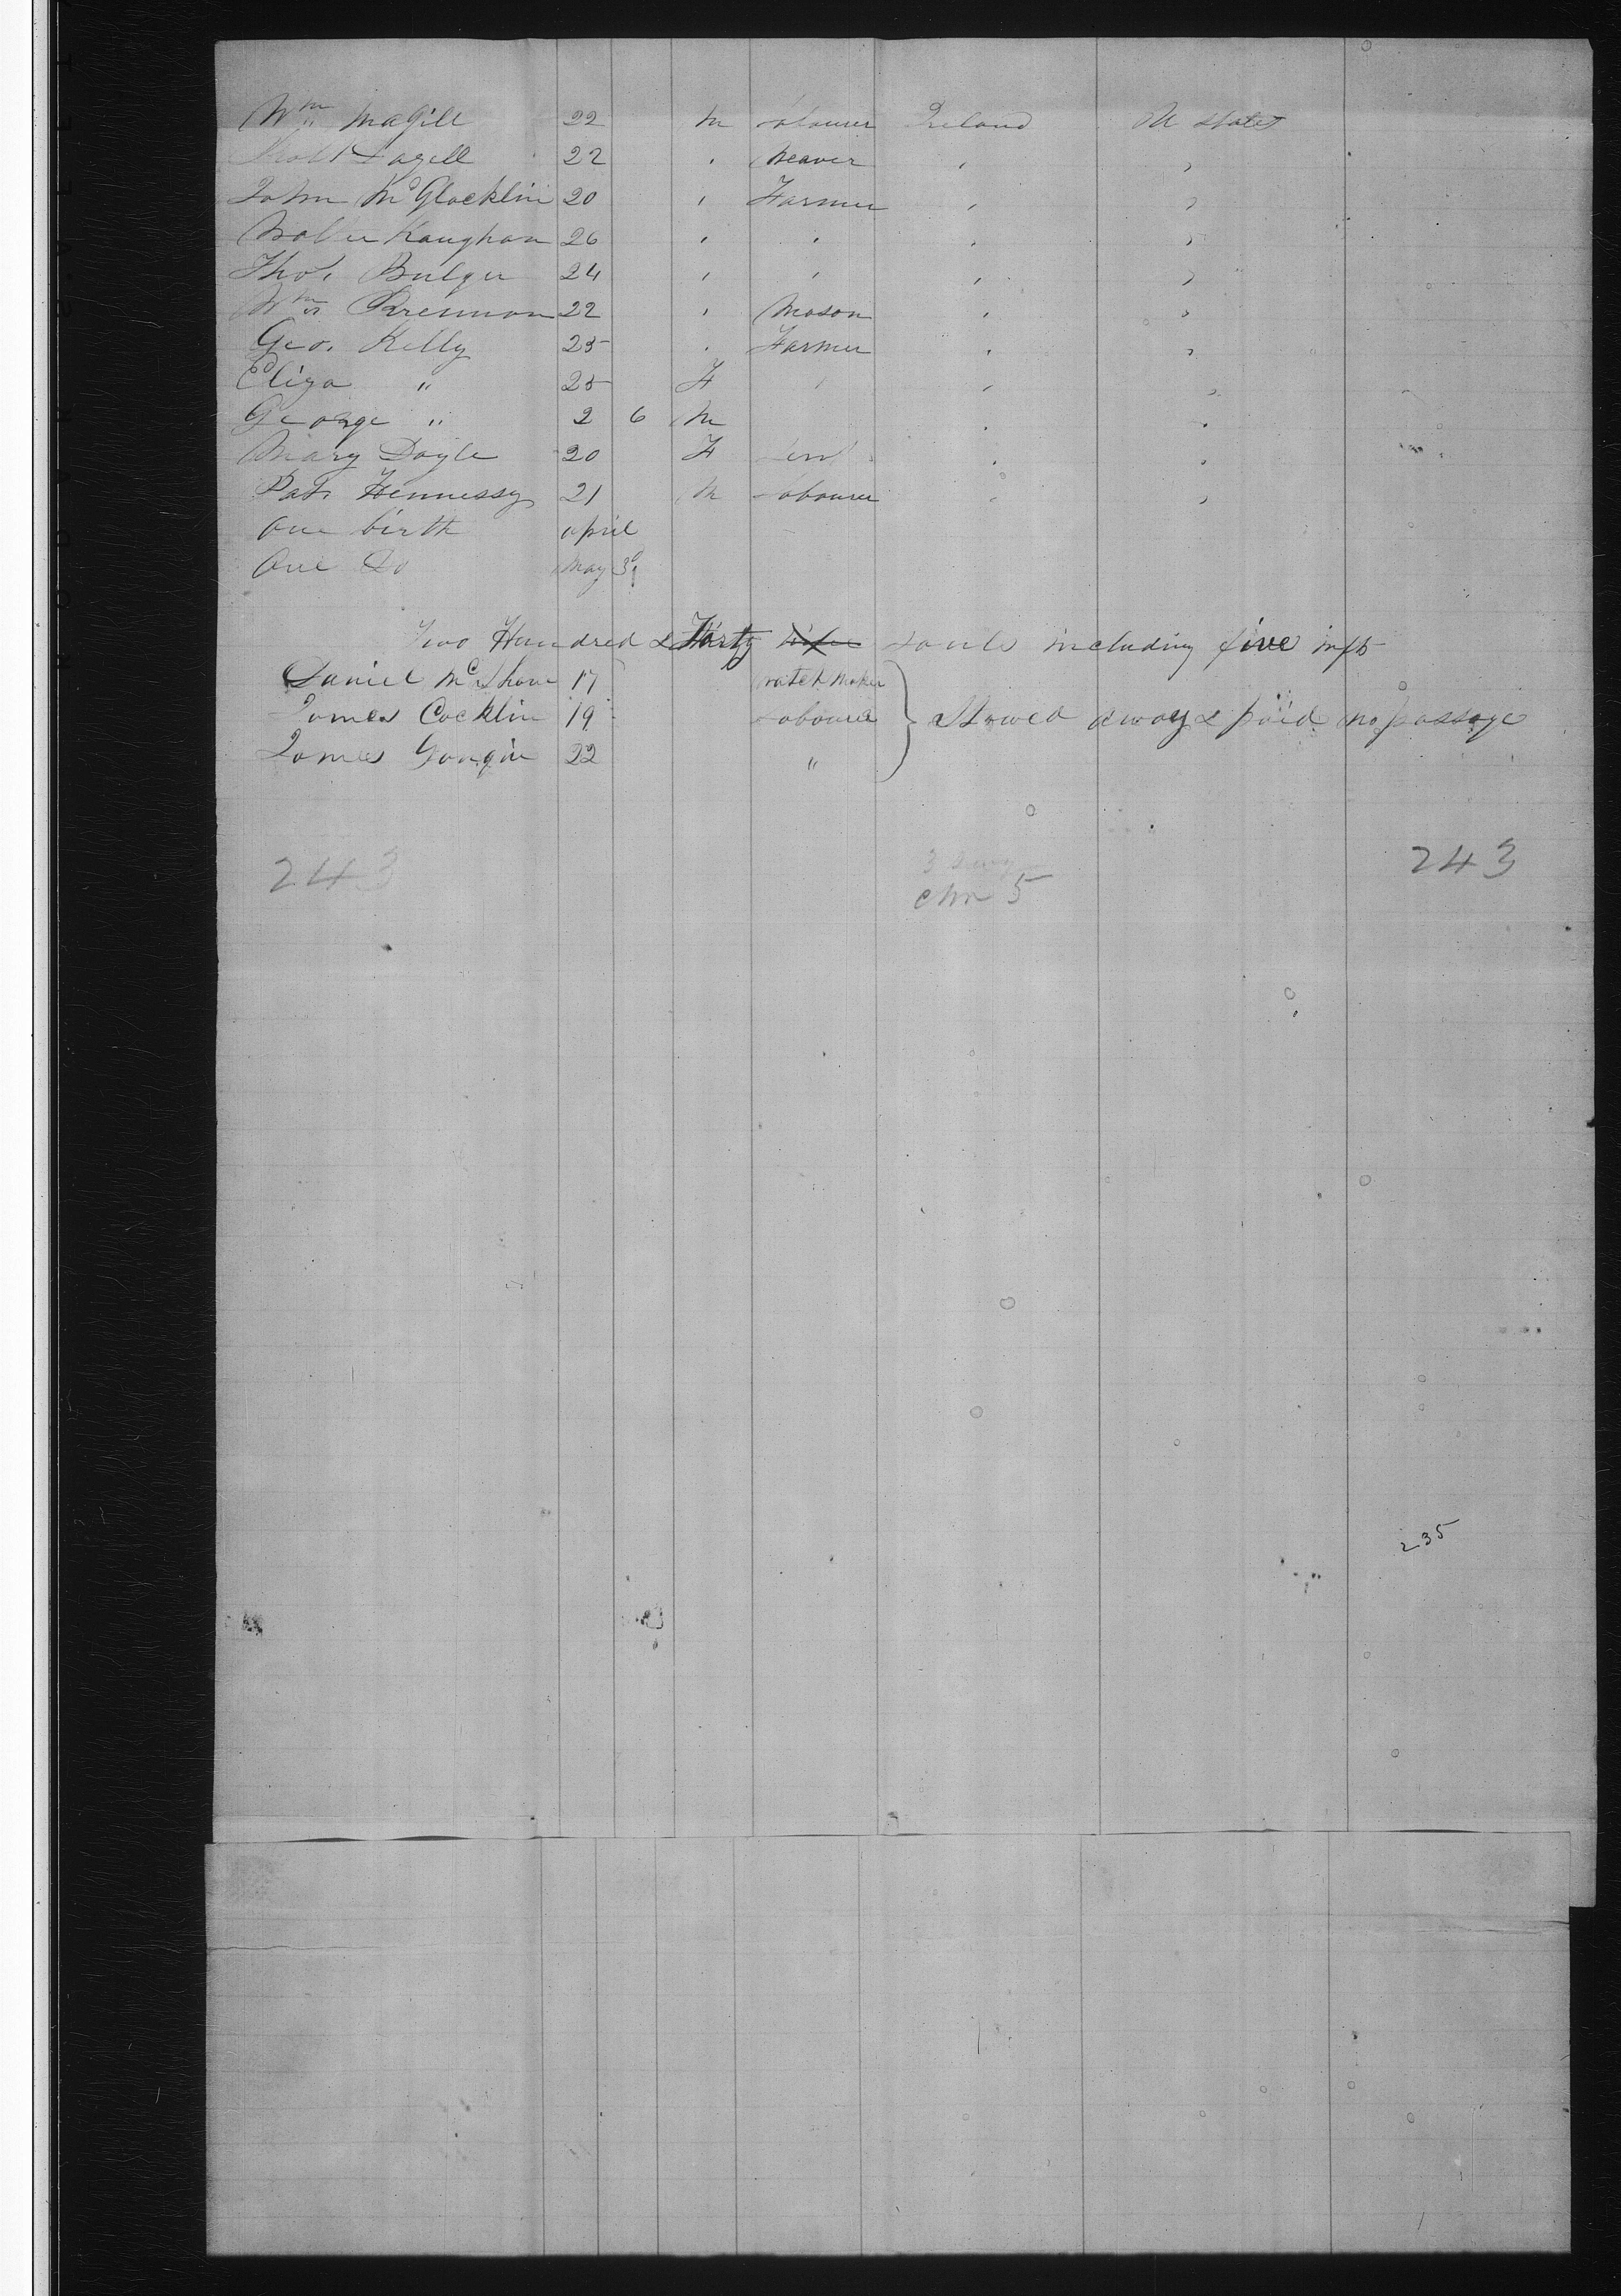 Wm Magill 22 M Labourer Ireland U States
Robt Lazell 22 " Weaver " "
John McGlocklin 20 " Farmer " "
Kaughan 26 " " " "
Thos. Bulger 24 " " " "
Wm Brennan 22 " Mason " "
Geo. Kelly 25 " Farmer " "
Eliza " 25 F " " "
George " 2 6 M " "
Mary Doyle 20 F " "
Pat. Hennessy 21 M Labourer " "
One birth april
One Do May 3
Two Hundred & souls including five infts
Daniel McShane 17 Watch Maker
James Cocklin 19 Labourer Stowed away & paid no passage
James 22 "
243 243
5
235